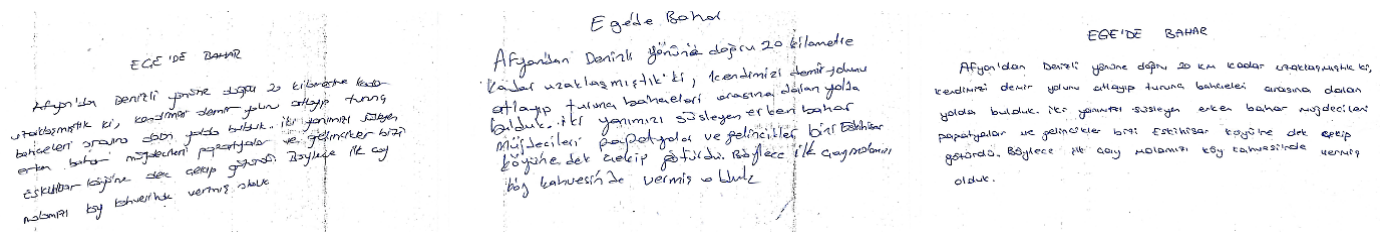 EGE'DE BAHAR
Afyon'dan Denizli yönüne doğru 20 kilometre kadar
uzaklaşmıştık ki, kendimizi demir yolunu atlayıp turunç
bahçeleri arasına dalan yolda bulduk. iki yanımızı süsleyen
erken bahar müjdecileri papatyalar ve gelincikler bizi
Eskihisar köyüne dek çekip götürdü. Böylece ilk çay
molamızı köy kahvesinde vermiş olduk
Ege'de Bahar
Afyon'dan Denizli yönüne doğru 20 kilometre
kadar uzaklaşmıştık ki, kendimizi demiryolunu
atlayıp turunç bahçeleri arasına dalan yolda
bulduk. iki yanımızı süsleyen erken bahar
müjdecileri papatyalar ve gelincikler bizi Eskihisar
köyüne dek çekip götürdü. Böylece ilk çay molamızı
köy kahvesinde vermiş olduk
EGE'DE BAHAR
Afyon'dan Denizli yönüne doğru 20 km kadar uzaklaşmıştık ki,
kendimizi demir yolunu atlayıp turunç bahçeleri arasına dalan
yolda bulduk. iki yanımızı süsleyen erken bahar müjdecileri
papatyalar ve gelincikler bizi Eskihisar köyüne dek çekip
götürdü. Böylece ilk çay molamızı köy kahvesinde vermiş
olduk.